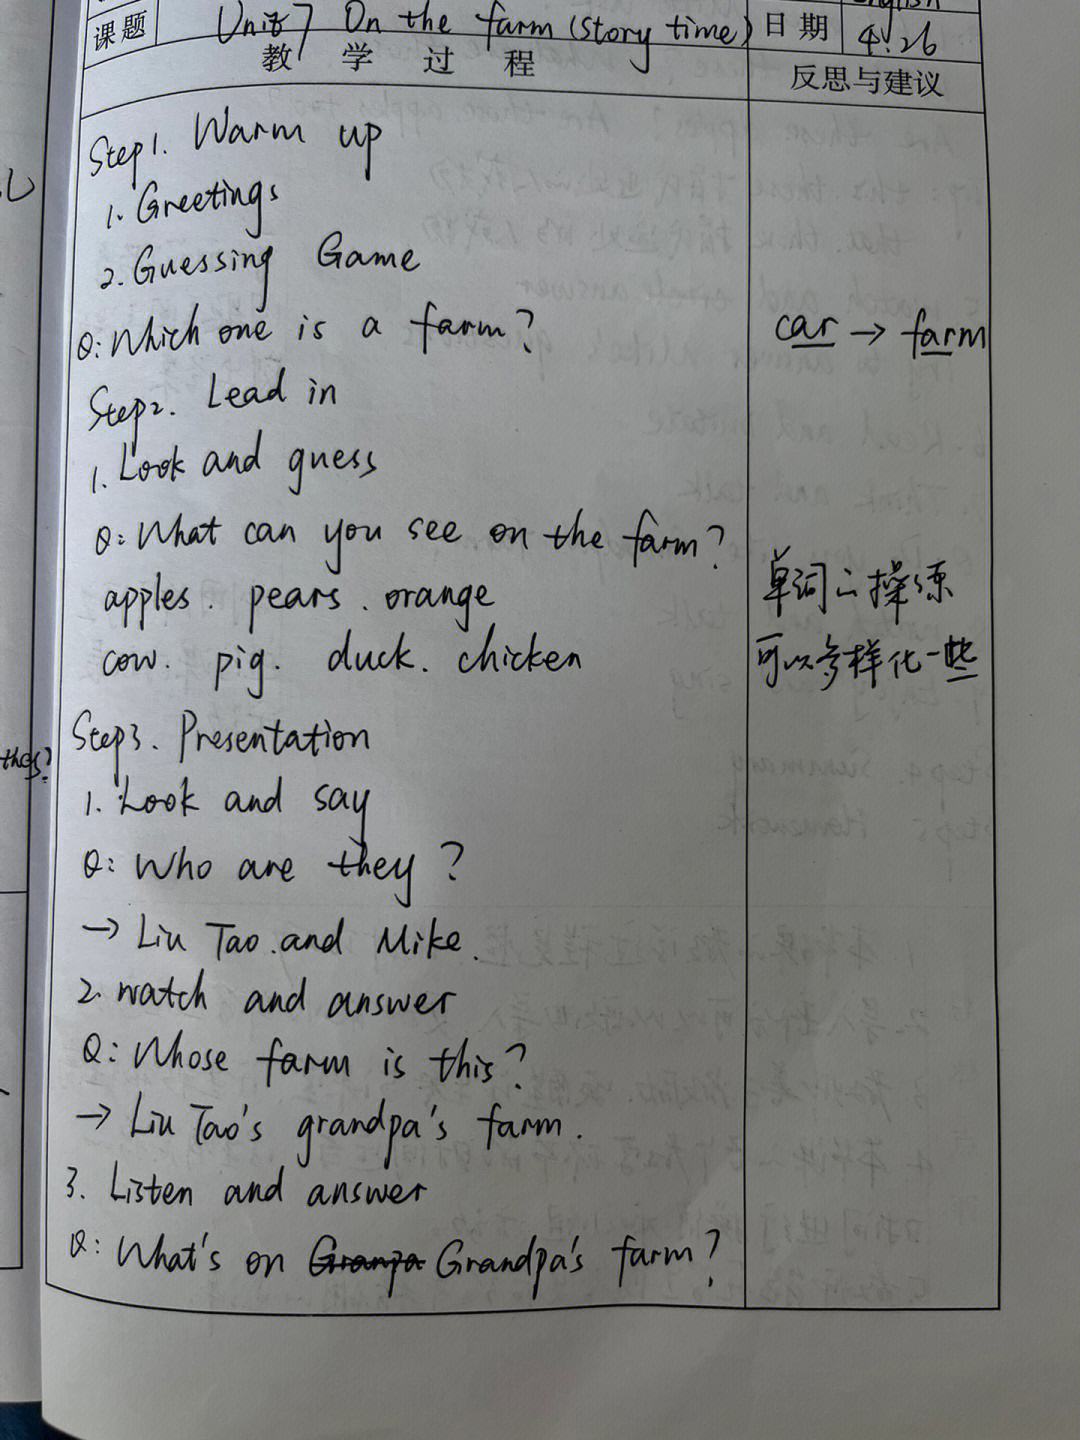 English
课题 Unit 7 On the farm (Story time) 日期 4.26
教学过程 反思与建议
Step1. Warm up
1. Greetings
2. Guessing Game
Q: Which one is a farm? car → farm
Step2. Lead in
1. Look and guess
Q: What can you see on the farm?
apples. pears. orange 单词的操练
cow. pig. duck. chicken 可以多样化一些
Step3. Presentation
1. Look and say
Q: Who are they?
→ Liu Tao and Mike.
2. watch and answer
Q: Whose farm is this?
→ Liu Tao's grandpa's farm.
3. Listen and answer
Q: What's on Granpa Grandpa's farm?